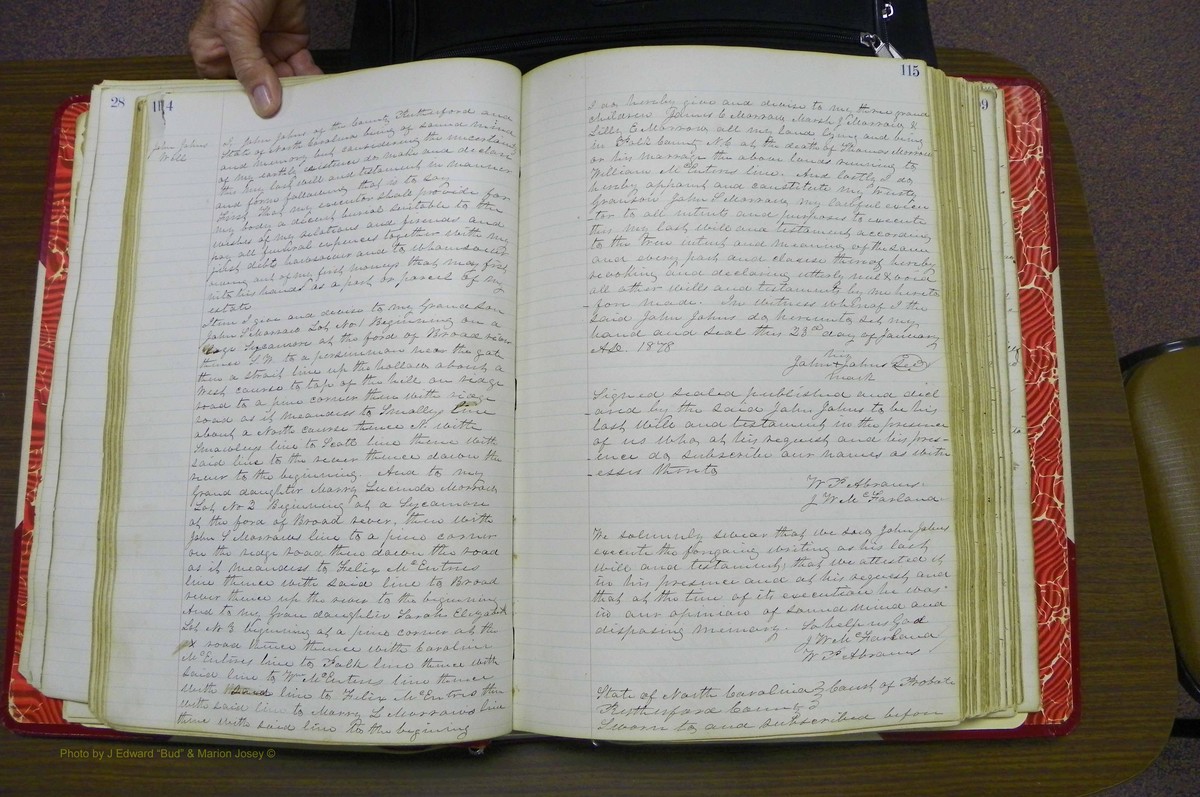 28
114
John Johns
Will
I John Johns of the County Rutherford and
State of North Carolina being of sound mind
and memory but considering the uncertainty
of my earthly existence do make and declare
this my last will and testament in manner
and form following that is to say
First That my executor shall provide for
my body a decent burial suitable to the
wishes of my relations and friends and
pay all funeral expences together with my
just debts howsoever and to whomsoever
owing out of my first moneys that may first
into his hands as a part or parcel of my
estate
Item I give and devise to my Grand Son
John S Morrow Lot No 1 Beginning on a
large Sycamore at the ford of Broad river
thence S.W. to a persimmon near the gate
then a strait line up the hollow about a
West course to top of the hill on ridge
road to a pine corner then with ridge
road as it meanders to Smalleys line
about a North course thence N. with
Smawleys line to Scott line thence with
said line to the river thence down the
river to the beginning. And to my
Grand daughter Marry Lucinda Morrow
Lot Nr 2 Beginning at a Sycamore
at the ford of Broad river, then with
John S Morrows line to a pine corner
on the ridge road then down the road
as it meanders to Felix McEntires
line thence with said line to Broad
river thence up the river to the beginning
And to my Gran daughter Sarah Elizabeth
Lot Nr 3 beginning at a pine corner at the
road thence thence with Caroline
McEntires line to Polk line thence with
said line to Wm McEntires line thence
with said line to Felix McEntires then
with said line to Marry L Morrows line
then with said line to the begining
115
9
I do hereby give and devise to my three grand
children Johns C Morrow Marsh J Morrow &
Lilly E Morrow all my land lying and being
in Polk County N.C. at the death of Thomas Morrow
or his marrage the above lands running to
William McEntires line. And lastly I do
hereby appoint and constitute my trusty
Granson John S Morrow my lawful execu
tor to all intents and purposes to execute
this my last will and testament according
to the true intent and meaning of the same
and every part and clause thereof hereby
revoking and declaring utterly null & void
all other wills and testaments by me hereto
-fore made. In witness whereof I the
said John Johns do hereunto set my
hand and seal this 23rd day of January
A.D. 1878
his
John + Johns Seal
mark
Signed sealed published and decl
-ared by the said John Johns to be his
last will and testament in the presence
of us who at his request and his pres-
-ence do subscribe our names as witn
-esses thereto
W P Abrams
J W McFarland
We solemnly swear that we saw John Johns
execute the foregoing writing as his last
will and testament, that we attested it
in his presence and at his request and
that at the time of its execution he was
in our opinion of sound mind and
disposing memory. So help us God
J W McFarland
W P Abrams
State of North Carolina } Court of Probate
Rutherford County }
Sworn to and subscribed before
Photo by J Edward "Bud" & Marion Josey ©